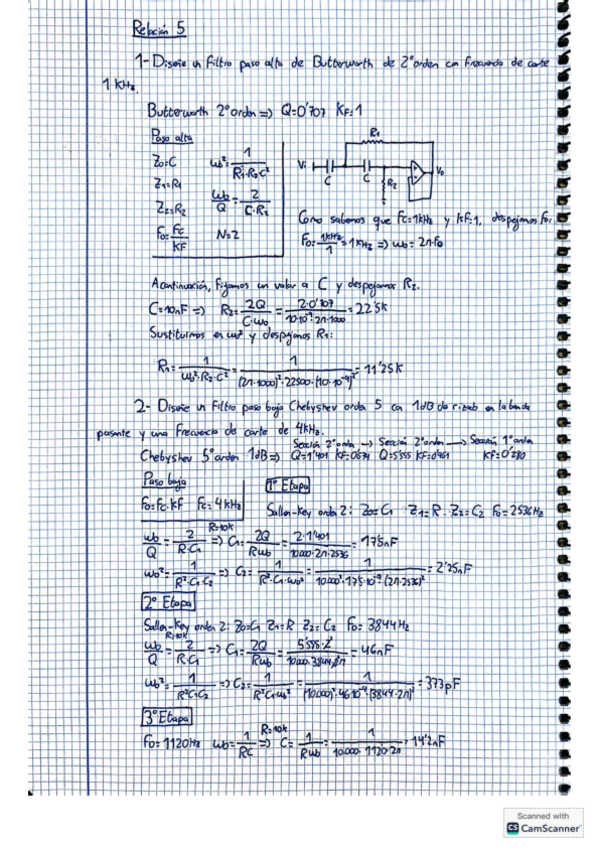 Relación 5
1- Diseñe un filtro paso alta de Butterworth de 2º orden con frecuencia de corte
1 kHz.
Butterworth 2º orden => Q=0'707 KF=1
Paso alta
Z0=C ω0²= 1/(R1·R2·C²)
Z1=R1
Z2=R2 ω0/Q = 2/(C·R2)
F0= Fc/KF N=2
R1
Vi C C R2 V0
Como sabemos que Fc=1kHz y KF=1, despejamos F0:
F0= 1kHz/1 =1kHz => ω0= 2π·F0
A continuación, fijamos un valor a C y despejamos R2.
C=10nF => R2= 2Q/(C·ω0) = 2·0'707/(10·10⁻⁹·2π·1000) = 22'5K
Sustituimos en ω0² y despejamos R1:
R1= 1/(ω0²·R2·C²) = 1/((2π·1000)²·22500·(10·10⁻⁹)²) = 11'25K
2- Diseñe un filtro paso bajo Chebyshev orden 5 con 1dB de rizado en la banda
pasante y una frecuencia de corte de 4kHz.
Sección 2º orden -> Sección 2º orden -> Sección 1º orden
Chebyshev 5º orden 1dB => Q=1'401 KF=0'634 Q=5'555 KF=0'961 KF=0'280
Paso bajo
F0=Fc·KF Fc=4kHz
1º Etapa
Sallen-Key orden 2: Z0=C1 Z1=R Z2=C2 F0=2536Hz
R=10k
ω0/Q = 2/(R·C1) => C1= 2Q/(Rω0) = 2·1'401/(10000·2π·2536) = 17'5nF
ω0²= 1/(R²·C1·C2) => C2= 1/(R²·C1·ω0²) = 1/(10000²·17'5·10⁻⁹·(2π·2536)²) = 2'25nF
2º Etapa
Sallen-Key orden 2: Z0=C1 Z1=R Z2=C2 F0=3844Hz
R=10k
ω0/Q = 2/(R·C1) => C1= 2Q/(Rω0) = 5'555·2/(10000·3844·2π) = 46nF
ω0²= 1/(R²C1C2) => C2= 1/(R²C1ω0²) = 1/((10000)²·46·10⁻⁹·(3844·2π)²) = 373pF
3º Etapa
R=10k
F0= 1120Hz ω0= 1/(RC) => C= 1/(Rω0) = 1/(10.000·1120·2π) = 14'2nF
Scanned with
CS CamScanner